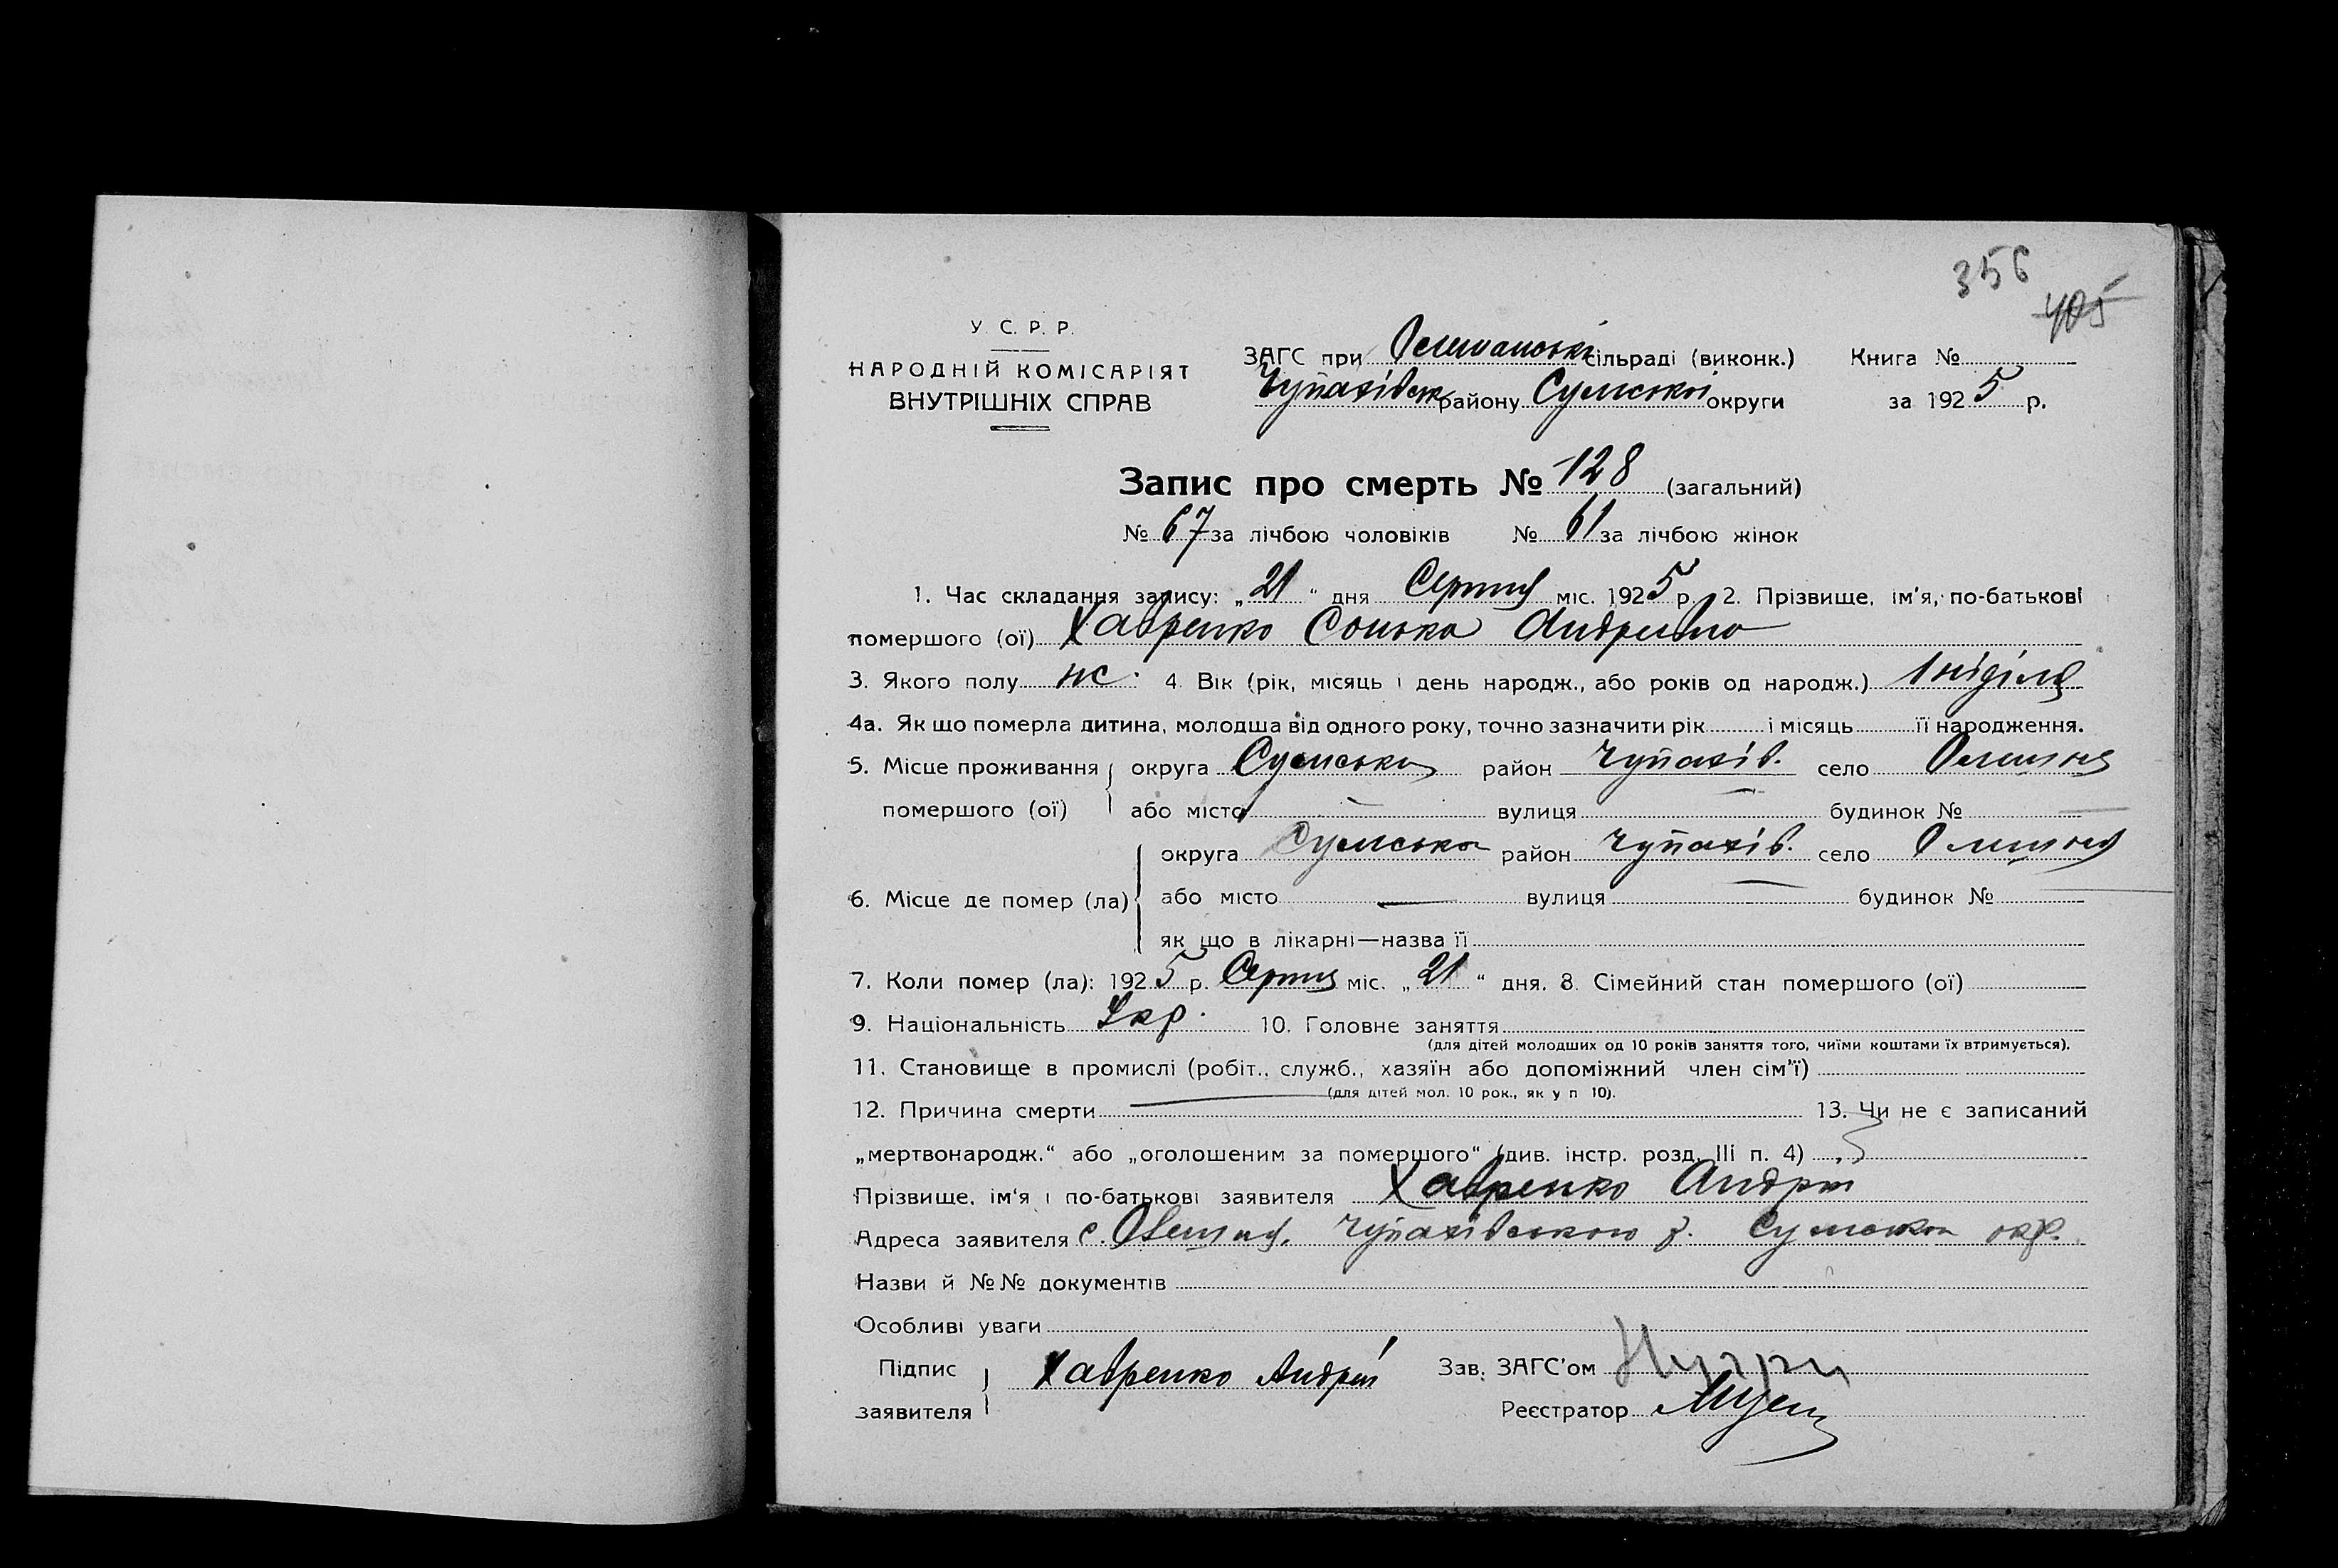 356
405
У. С. Р. Р.
НАРОДНІЙ КОМІСАРІЯТ
ВНУТРІШНІХ СПРАВ
ЗАГС при Олешанські сільраді (виконк.) Книга №
Чупахівськ району Сумської округи за 1925 р.
Запис про смерть № 128 (загальний)
№ 67 за лічбою чоловіків № 61 за лічбою жінок
1. Час складання запису: „21“ дня Серпня міс. 1925 р. 2. Прізвище, ім'я, по-батькові
помершого (ої) Хавренко Сонька Андреівна
3. Якого полу ж. 4. Вік (рік, місяць і день народж., або років од народж.) 1 ніділя
4а. Як що померла дитина, молодша від одного року, точно зазначити рік і місяць її народження.
5. Місце проживання округа Сумська район Чупахів. село Олешня
помершого (ої) або місто — вулиця — будинок № —
округа Сумська район Чупахів. село Олешня
6. Місце де помер (ла) або місто — вулиця — будинок № —
як що в лікарні—назва її
7. Коли помер (ла): 1925 р. Серпня міс. „21“ дня. 8. Сімейний стан помершого (ої)
9. Національність Укр. 10. Головне заняття
(для дітей молодших од 10 років заняття того, чиїми коштами їх втримується).
11. Становище в промислі (робіт., служб., хазяїн або допоміжний член сім'ї)
(для дітей мол. 10 рок., як у п 10).
12. Причина смерти — 13. Чи не є записаний
„мертвонародж.“ або „оголошеним за помершого“ (див. інстр. розд. III п. 4)
Прізвище, ім'я і по-батькові заявителя Хавренко Андрій
Адреса заявителя с. Олешня, Чупахівського р. Сумської окр.
Назви й №№ документів
Особливі уваги
Підпис
заявителя Хавренко Андрій
Зав. ЗАГС'ом
Реєстратор